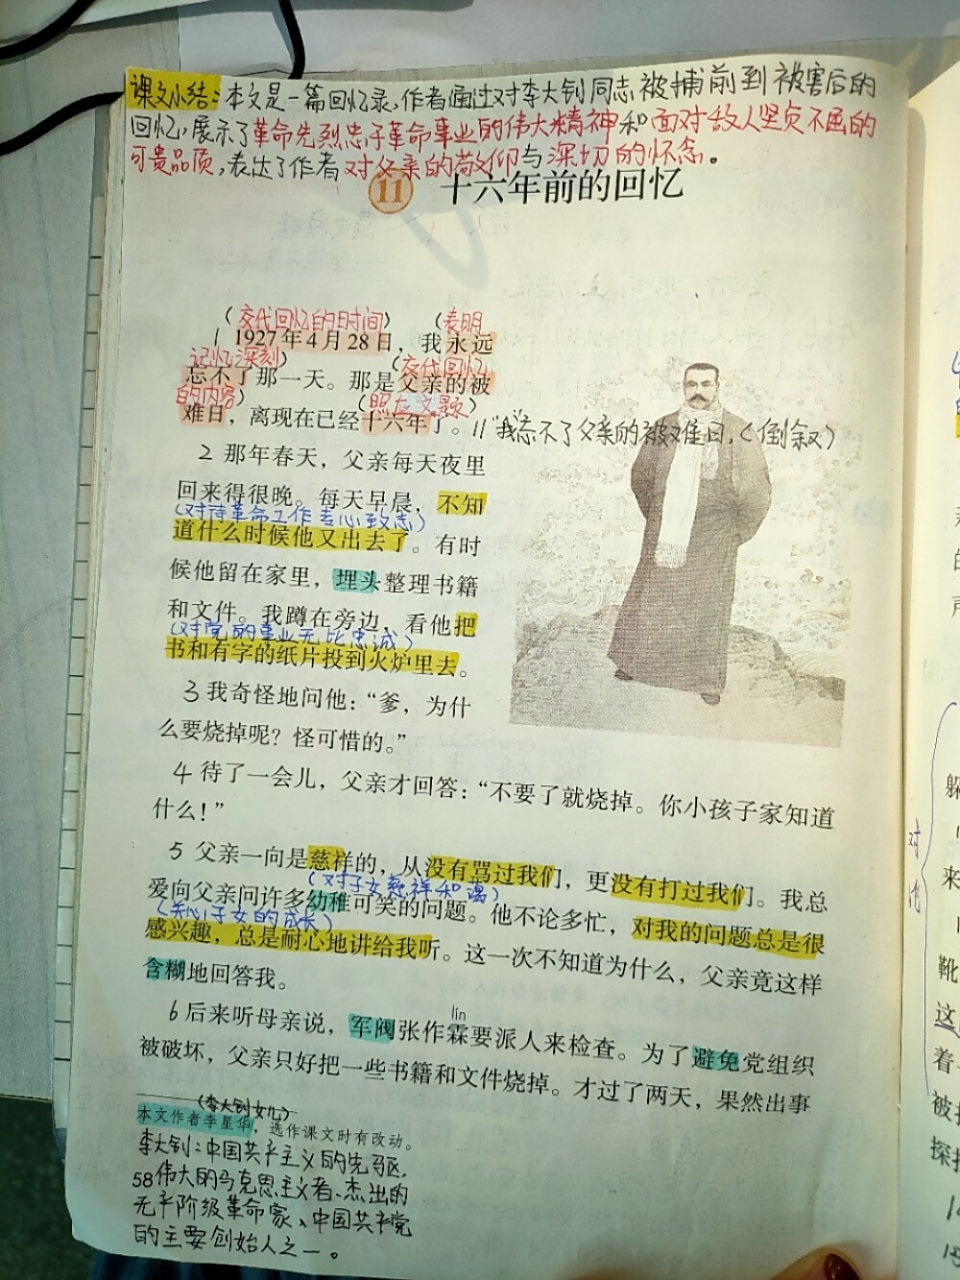 课文小结：本文是一篇回忆录，作者通过对李大钊同志被捕前到被害后的
回忆，展示了革命先烈忠于革命事业的伟大精神和面对敌人坚贞不屈的
可贵品质，表达了作者对父亲的敬仰与深切的怀念。
11 十六年前的回忆
（交代回忆的时间）（表明
1 1927年4月28日，我永远
记忆深刻）（交代回忆
忘不了那一天。那是父亲的被
的内容）（照应文题）
难日，离现在已经十六年了。 11"我"忘不了父亲的被难日。（倒叙）
2 那年春天，父亲每天夜里
回来得很晚。每天早晨，不知
（对待革命工作专心致志）
道什么时候他又出去了。有时
候他留在家里，埋头整理书籍
和文件。我蹲在旁边，看他把
（对党的事业无比忠诚）
书和有字的纸片投到火炉里去。
3 我奇怪地问他：“爹，为什
么要烧掉呢？怪可惜的。”
4 待了一会儿，父亲才回答：“不要了就烧掉。你小孩子家知道
什么！”
5 父亲一向是慈祥的，从没有骂过我们，更没有打过我们。我总
（对子女慈祥和蔼）
爱向父亲问许多幼稚可笑的问题。他不论多忙，对我的问题总是很
（关心子女的成长）
感兴趣，总是耐心地讲给我听。这一次不知道为什么，父亲竟这样
含糊地回答我。
lín
6 后来听母亲说，军阀张作霖要派人来检查。为了避免党组织
被破坏，父亲只好把一些书籍和文件烧掉。才过了两天，果然出事
（李大钊女儿）
本文作者李星华，选作课文时有改动。
李大钊：中国共产主义的先驱，
58 伟大的马克思主义者、杰出的
无产阶级革命家、中国共产党
的主要创始人之一。
对
比
躲
来
靴
这
着
被
探
14
15